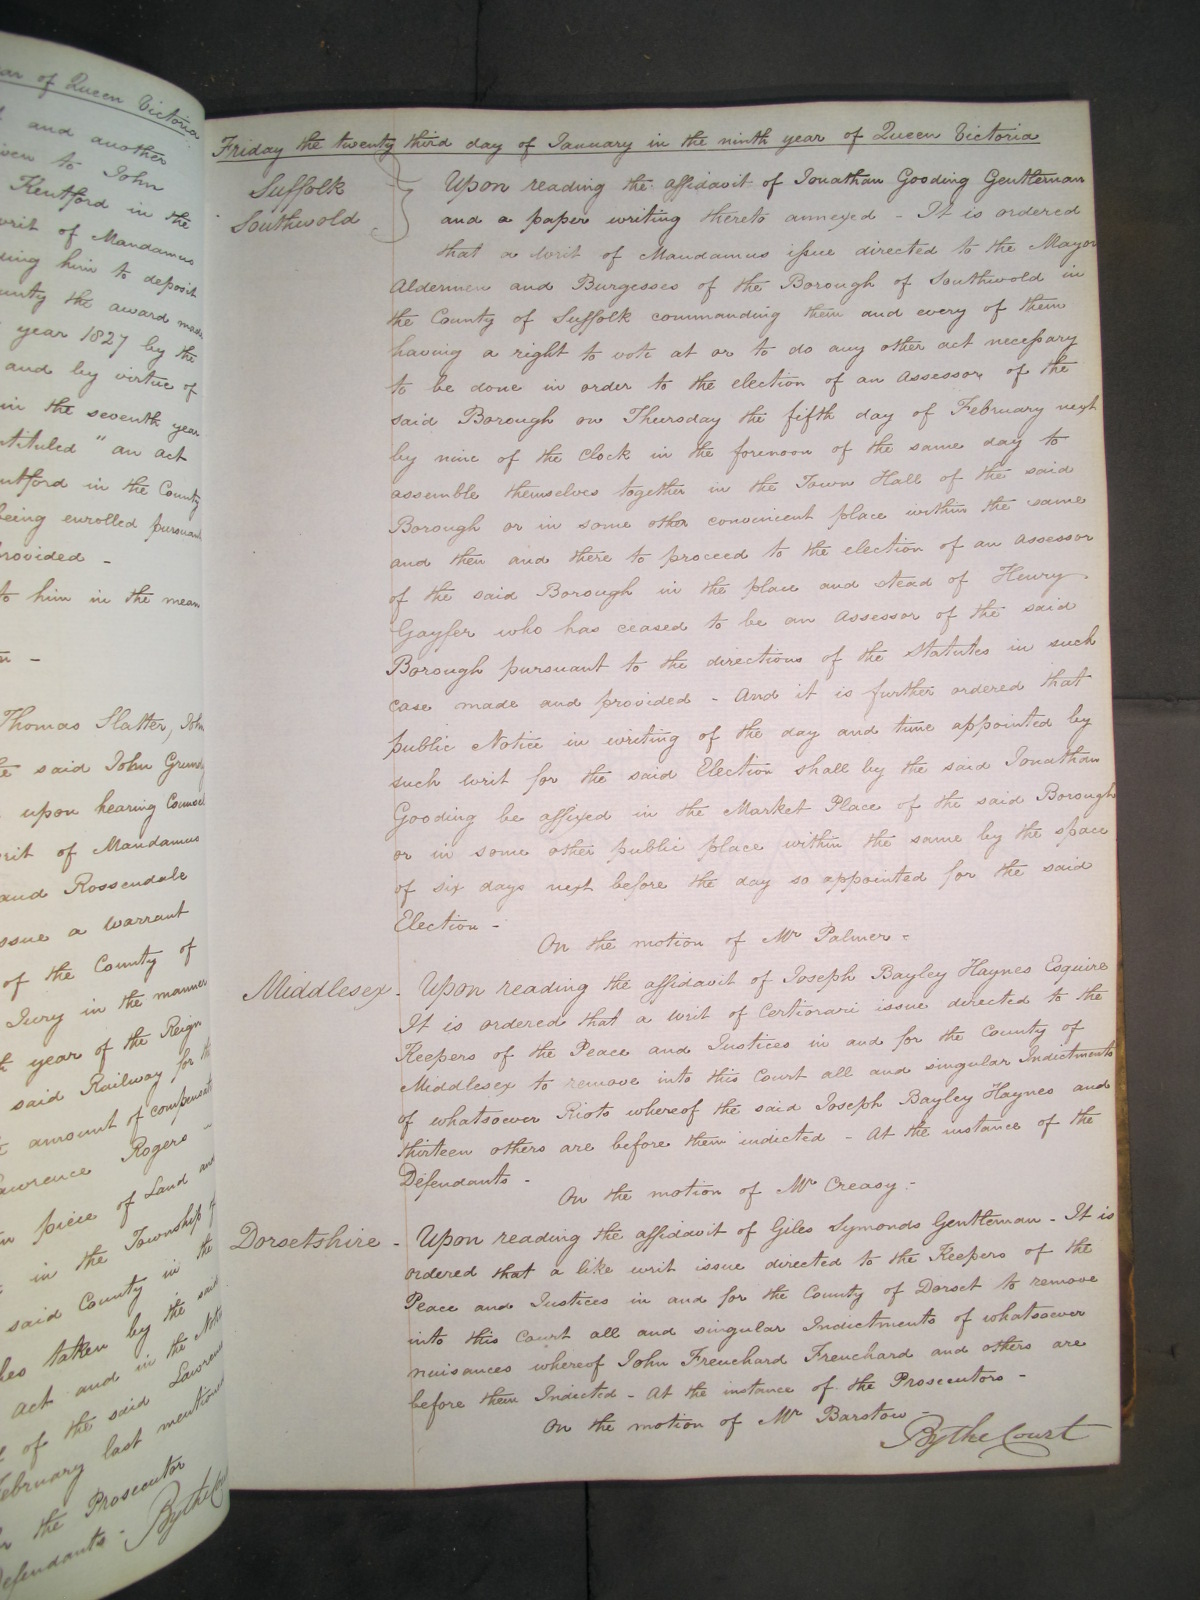 ar of Queen Victoria
and another
iven to John
Kentford in the
writ of Mandamus
ding him to deposit
unty the award made
year 1827 by the
and by virtue of
in the seventh year
ntituled "an act
entford in the County
being enrolled pursuant
provided -
to him in the mean
Thomas Slatter, John
he said John Grundy
upon hearing Counsel
rit of Mandamus
and Rossendale
issue a Warrant
of the County of
Jury in the manner
th year of the Reign
said Railway for the
amount of compensat
awrence Rogers
piece of Land and
in the Township of
said County in the
hes taken by the said
act and in the Note
of the said Lawrence
February last mentioned
the Prosecutor
Defendants - By the Court
Friday the twenty third day of January in the ninth year of Queen Victoria
Suffolk
Southwold
Upon reading the affidavit of Jonathan Gooding Gentleman
and a paper writing thereto annexed - It is ordered
that a Writ of Mandamus issue directed to the Mayor
Aldermen and Burgesses of the Borough of Southwold in
the County of Suffolk commanding them and every of them
having a right to vote at or to do any other act necessary
to be done in order to the election of an Assessor of the
said Borough on Thursday the fifth day of February next
by nine of the Clock in the forenoon of the same day to
assemble themselves together in the Town Hall of the said
Borough or in some other convenient place within the same
and then and there to proceed to the election of an Assessor
of the said Borough in the place and stead of Henry
Gayfer who has ceased to be an Assessor of the said
Borough pursuant to the directions of the Statutes in such
case made and provided - And it is further ordered that
public Notice in writing of the day and time appointed by
such writ for the said Election shall by the said Jonathan
Gooding be affixed in the Market Place of the said Borough
or in some other public place within the same by the space
of six days next before the day so appointed for the said
Election -
On the motion of Mr Palmer -
Middlesex - Upon reading the affidavit of Joseph Bayley Haynes Esquire
It is ordered that a Writ of Certiorari issue directed to the
Keepers of the Peace and Justices in and for the County of
Middlesex to remove into this Court all and singular Indictments
of whatsoever Riots whereof the said Joseph Bayley Haynes and
thirteen others are before them indicted - At the instance of the
Defendants -
On the motion of Mr Creasy -
Dorsetshire - Upon reading the affidavit of Giles Symonds Gentleman - It is
ordered that a like writ issue directed to the Keepers of the
Peace and Justices in and for the County of Dorset to remove
into this Court all and singular Indictments of whatsoever
nuisances whereof John Frenchard Frenchard and others are
before them Indicted - At the instance of the Prosecutors -
On the motion of Mr Barstow -
By the Court